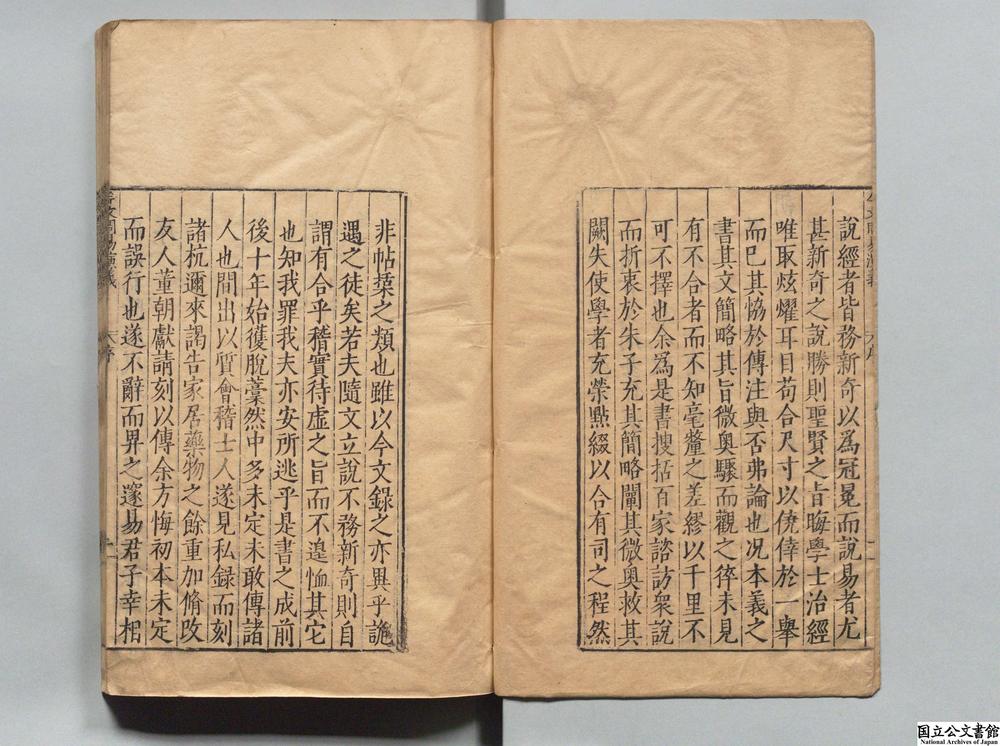 說經者皆務新奇以爲冠冕而說易者尤
甚新奇之說勝則聖賢之旨晦學士治經
唯取炫燿耳目苟合尺寸以僥倖於一舉
而已其恊於傳注與否弗論也况本義之
書其文簡略其旨微奥驟而觀之猝未見
有不合者而不知毫釐之差繆以千里不
可不擇也余爲是書搜括百家諮訪衆說
而折衷於朱子充其簡略闡其微奥救其
闕失使學者充榮點綴以合有司之程然
非帖㯡之類也雖以今文錄之亦異乎詭
遇之徒矣若夫隨文立說不務新奇則自
謂有合乎稽實待虛之旨而不遑恤其它
也知我罪我夫亦安所逃乎是書之成前
後十年始獲脫藁然中多未定未敢傳諸
人也間出以質會稽士人遂見私録而刻
諸杭邇來謁告家居藥物之餘重加脩改
友人董朝獻請刻以傳余方悔初本未定
而誤行也遂不辭而畀之邃易君子幸梠
二
國立公文書館
National Archives of Japan